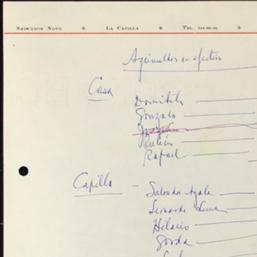 SALVADOR NOVO * LA CAPILLA * TEL.
Aguinaldos en efectivo
Casa
Domitila
Gonzalo
Rubén
Rafael
Capilla - Salvador Ayala
Leonardo
Hilario
Gorda